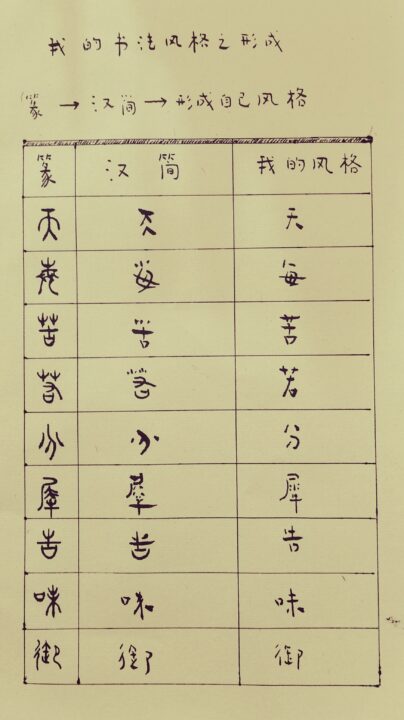 我的书法风格之形成
篆→汉简→形成自己风格
篆 汉简 我的风格
天 天 天
每 每 每
苦 苦 苦
若 若 若
分 分 分
犀 犀 犀
告 告 告
味 味 味
御 御 御